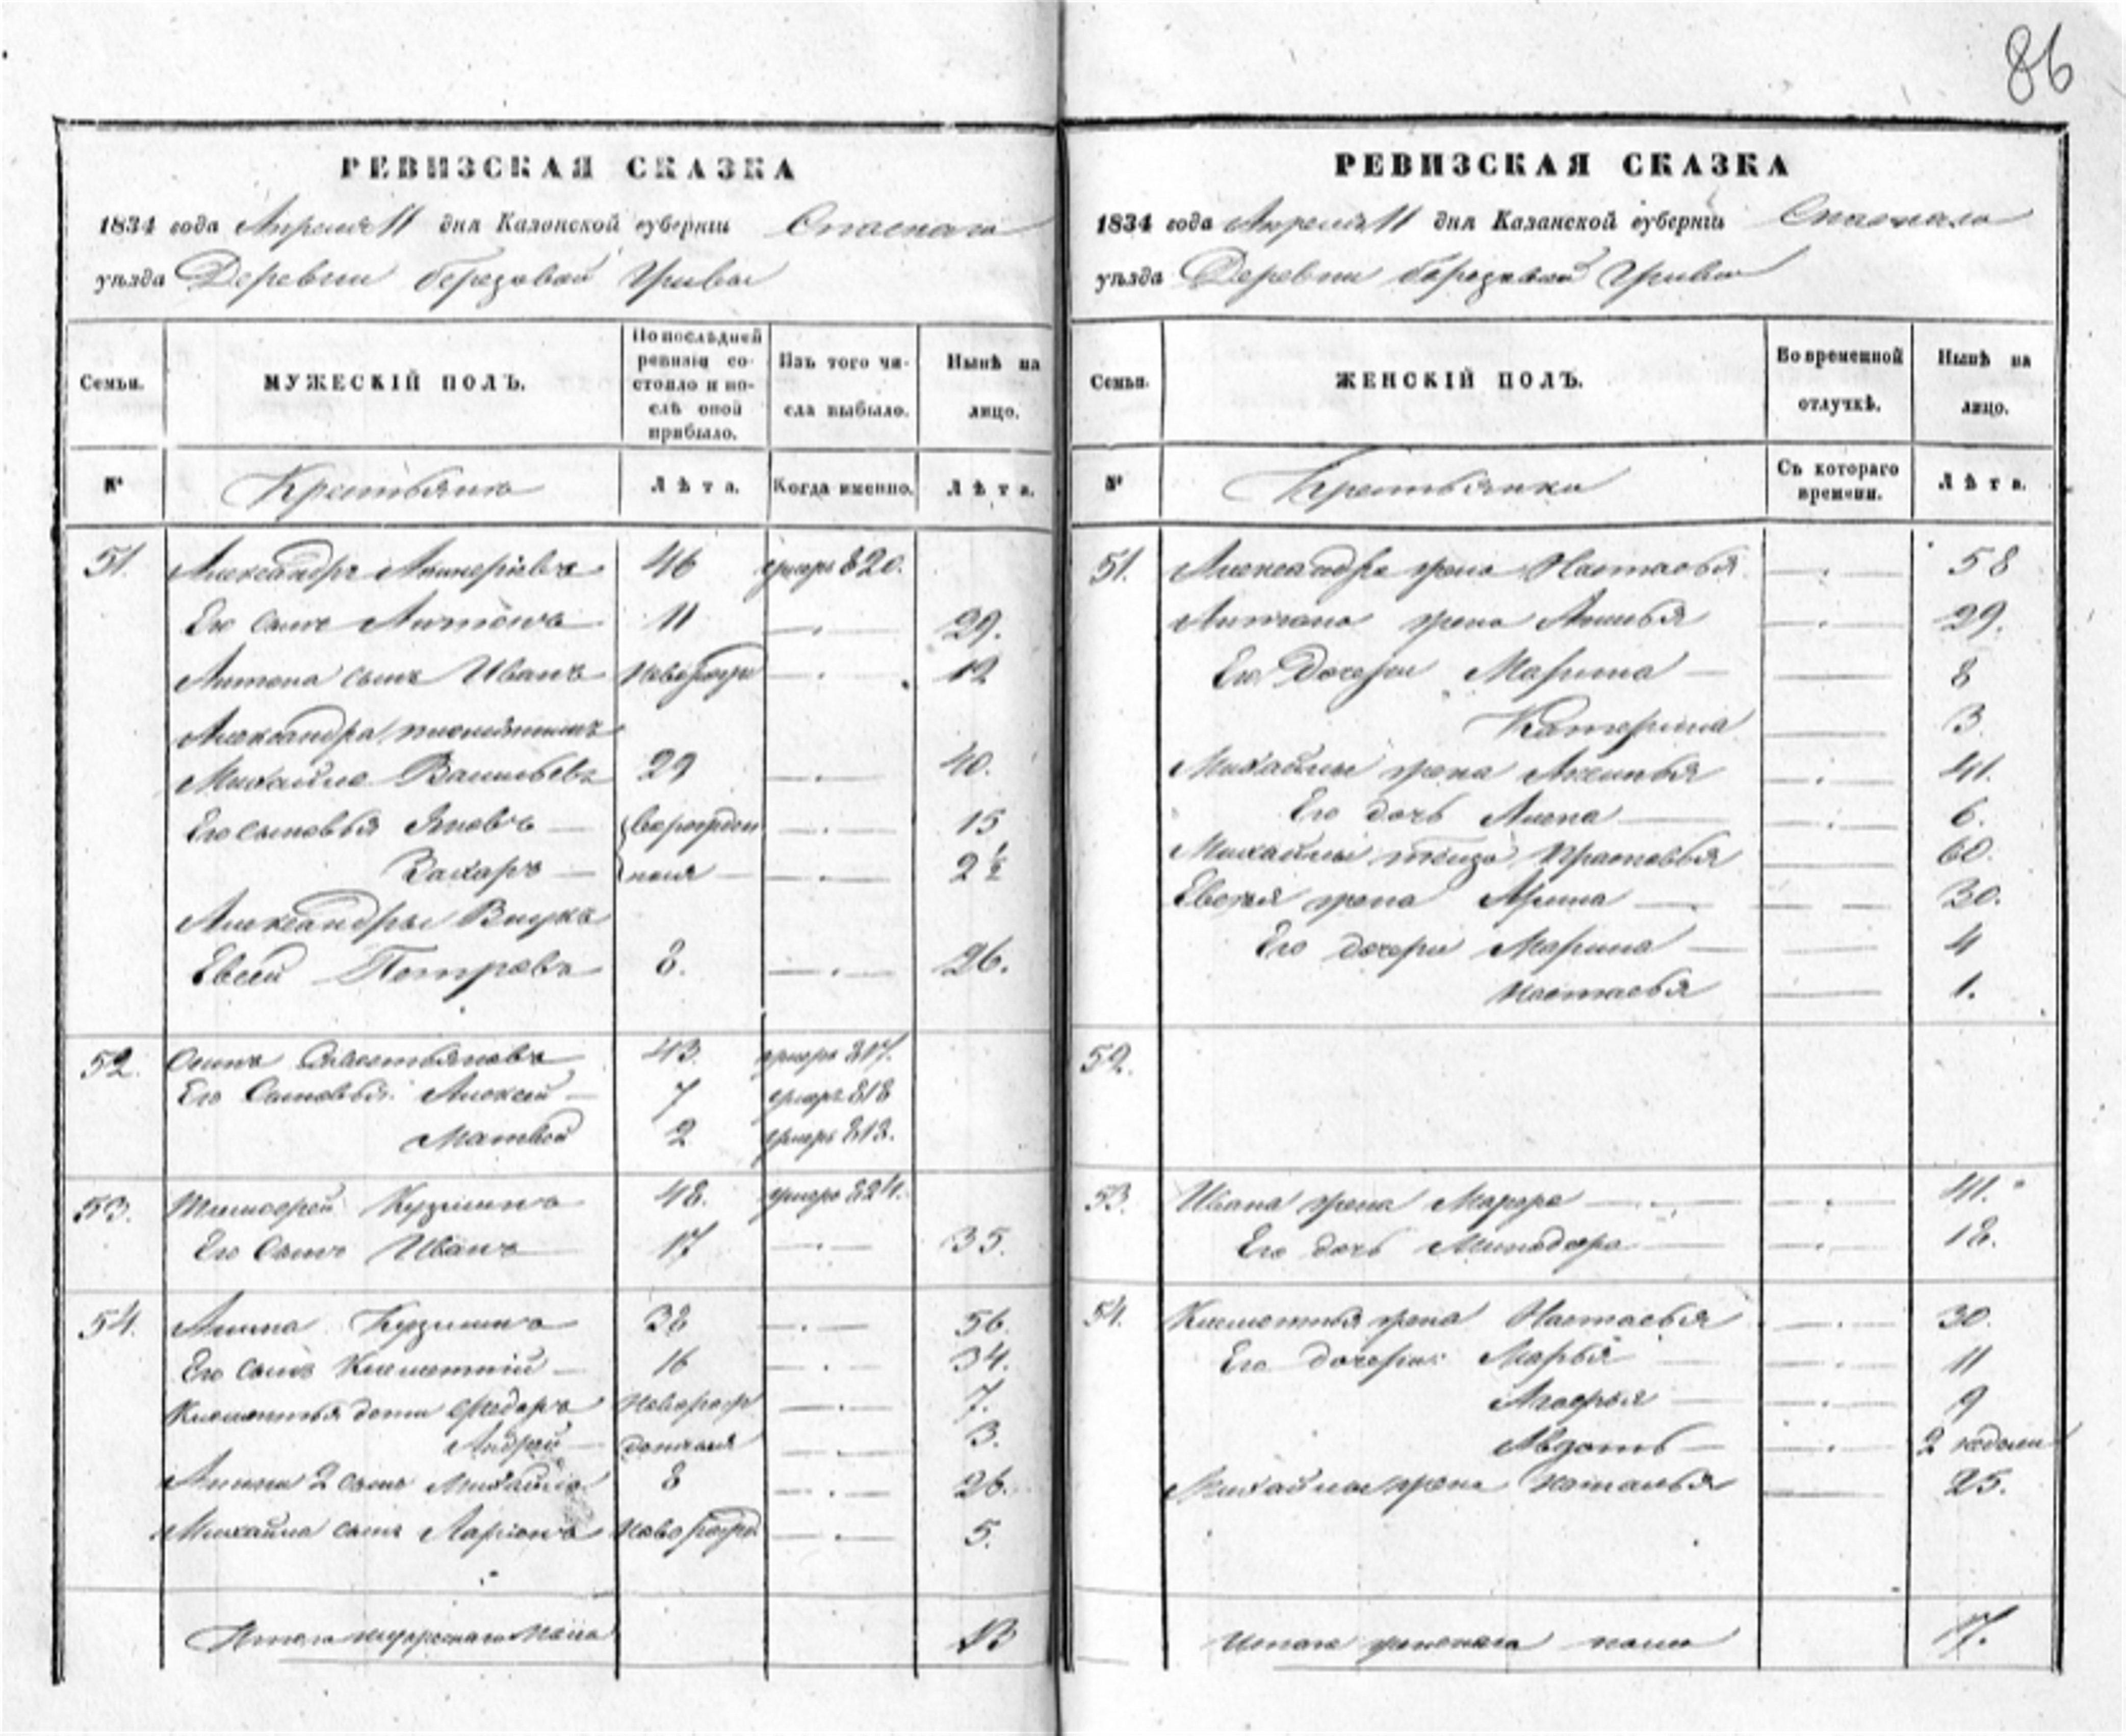 86
РЕВИЗСКАЯ СКАЗКА
1834 года Апреля 11 дня Казанской губерніи Спаскаго
уѣзда Деревни березовой Гривы
Семьи.
МУЖЕСКІЙ ПОЛЪ.
По послѣдней ревизіи состояло и послѣ оной прибыло.
Изъ того числа выбыло.
Нынѣ на лицо.
№
Крестьяне
Лѣта.
Когда именно.
Лѣта.
51. Александръ 46 умеръ 820.
Его сынъ Антонъ 11 29.
Антона сынъ Иванъ новорожд 12
Александра племянникъ
Михайло Васильевъ 29 40.
Его сыновья Яковъ 15
Захаръ 2½
Александры Внукъ
Евсей Петровъ 8. 26.
52. Осипъ Савостьяновъ 43. умеръ 817.
Его Сыновья: Алексей 7 умеръ 818
Матвей 2 умеръ 813.
53. Тимофей Кузминъ 48. умеръ 824.
Его Сынъ Иванъ 17 35.
54. Кузминъ 38 56.
Его сынъ Климентій 16 34.
Климентья дети Федоръ новорож 7.
Андрей 3.
2 сынъ Михайло 8 26.
Михайла сынъ Ларіонъ новорожд 5.
Итого мужескаго пола 13
РЕВИЗСКАЯ СКАЗКА
1834 года Апреля 11 дня Казанской губерніи Спаскаго
уѣзда Деревни березовой Гривы
Семьи.
ЖЕНСКІЙ ПОЛЪ.
Во временной отлучкѣ.
Нынѣ на лицо.
№
Крестьянки
Съ котораго времени.
Лѣта.
51. Александра жена Настасья 58
Антона жена 29.
Его Дочери Марина 8
Катерина 3.
Михайлы жена Аксинья 41.
Его дочь Алена 6.
Михайлы 60.
Евсея жена Арина 30.
Его дочери Марина 4
Настасья 1.
52.
53. Ивана жена Марфа 41.
Его дочь Минодора 18.
54. Климентья жена Настасья 30.
Его дочери: Марья 11
Агафья 9
Авдоть 2 недели
Михайлы жена Наталья 25.
Итого женскаго пола 17.